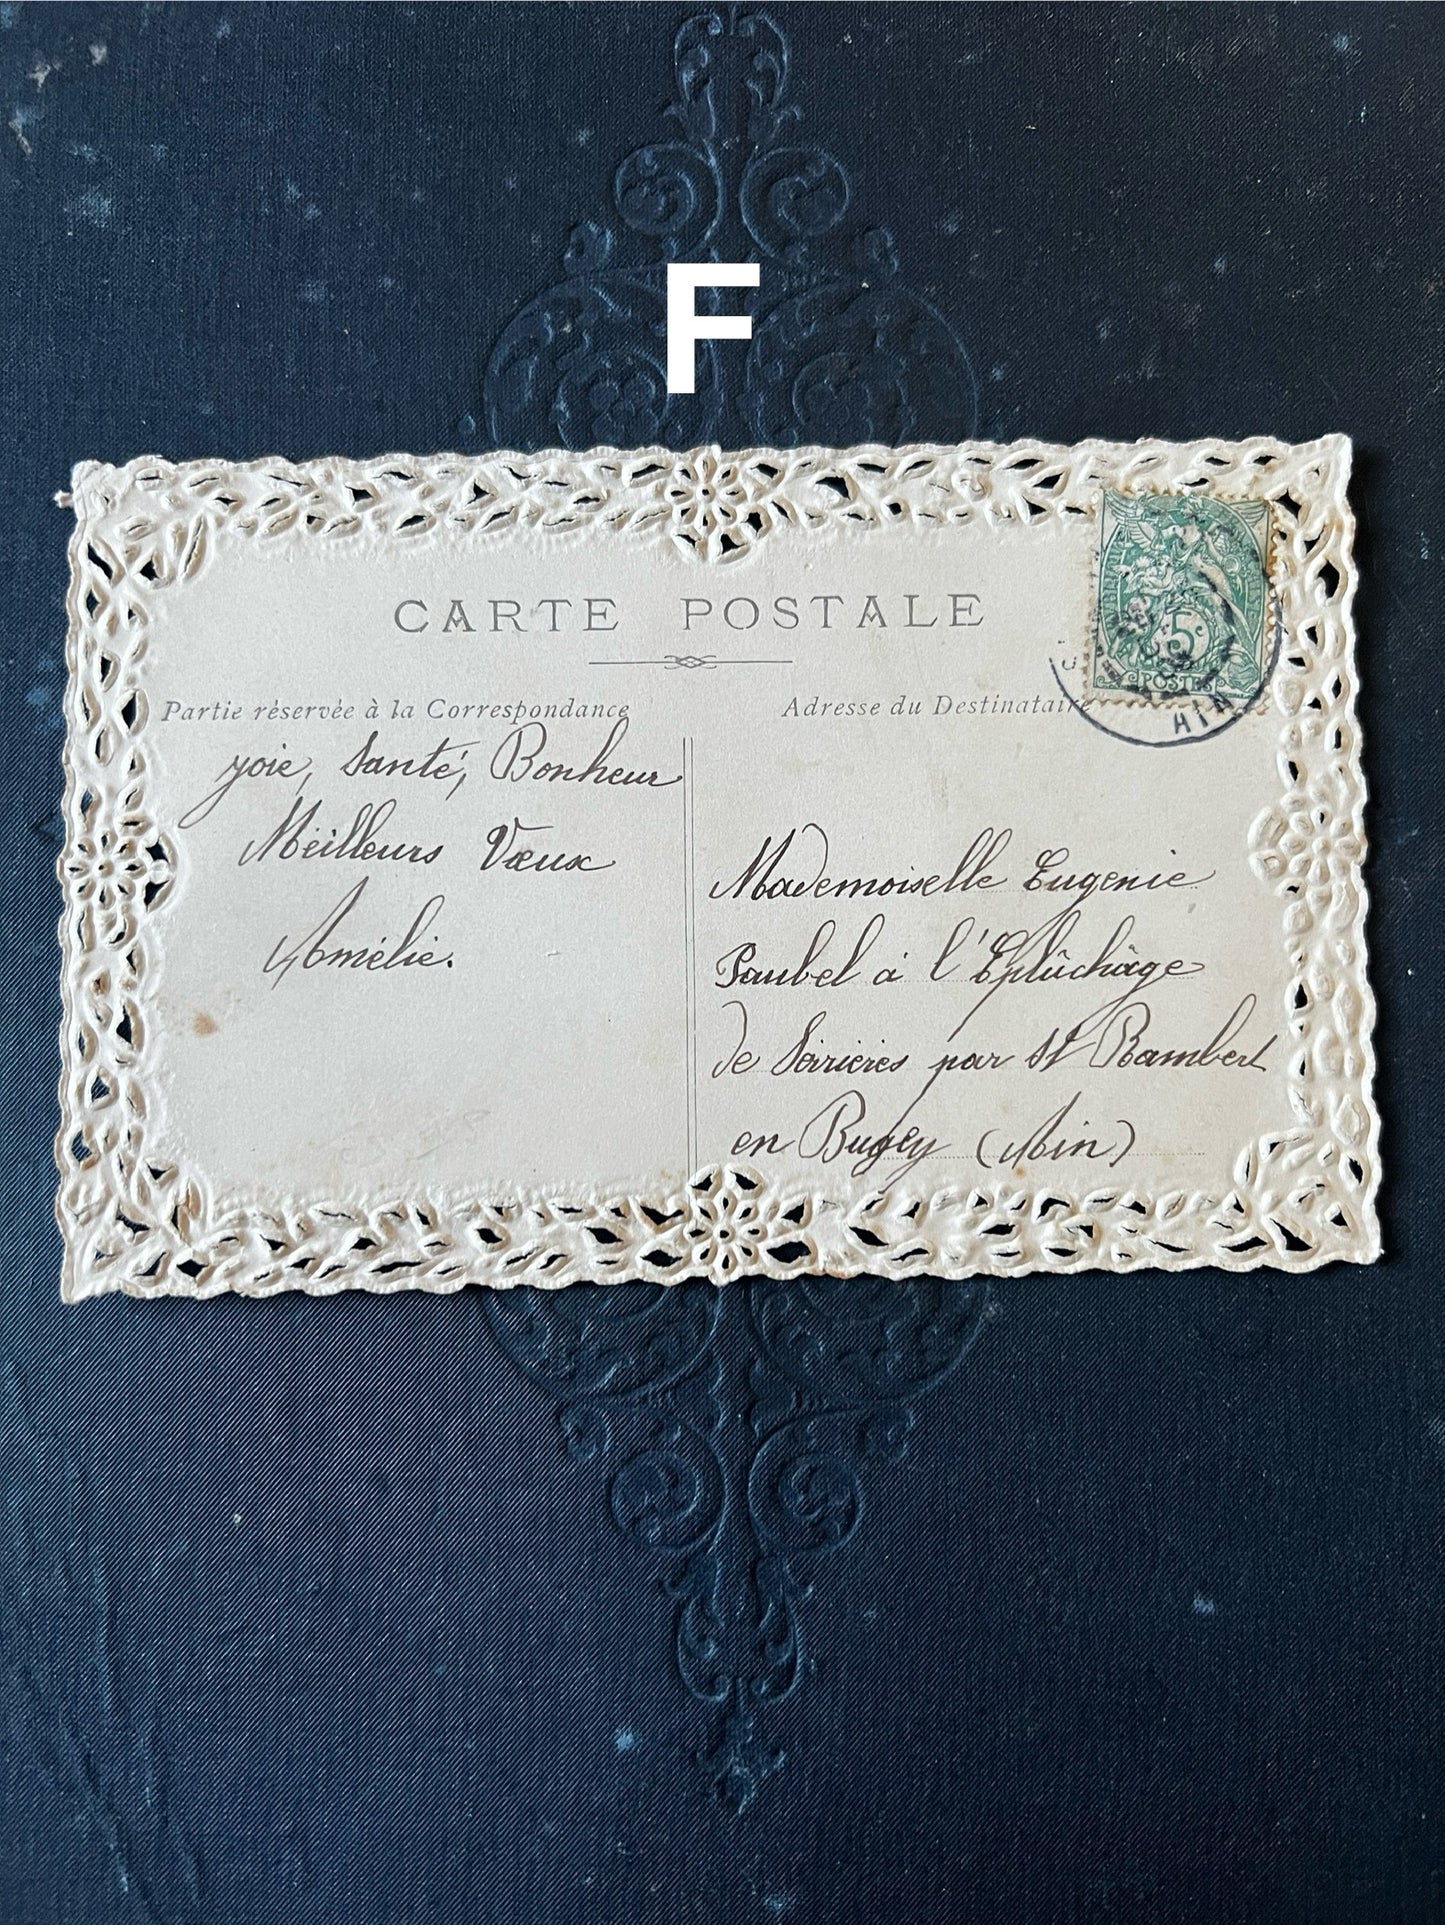 F
CARTE POSTALE
Partie réservée à la Correspondance
Adresse du Destinataire
5c
POSTES
AIN
joie, Santé, Bonheur
Meilleurs Vœux
Amélie.
Mademoiselle Eugenie
Paubel à l'Eplûchage
de Serrières par St Rambert
en Bugey (Ain)